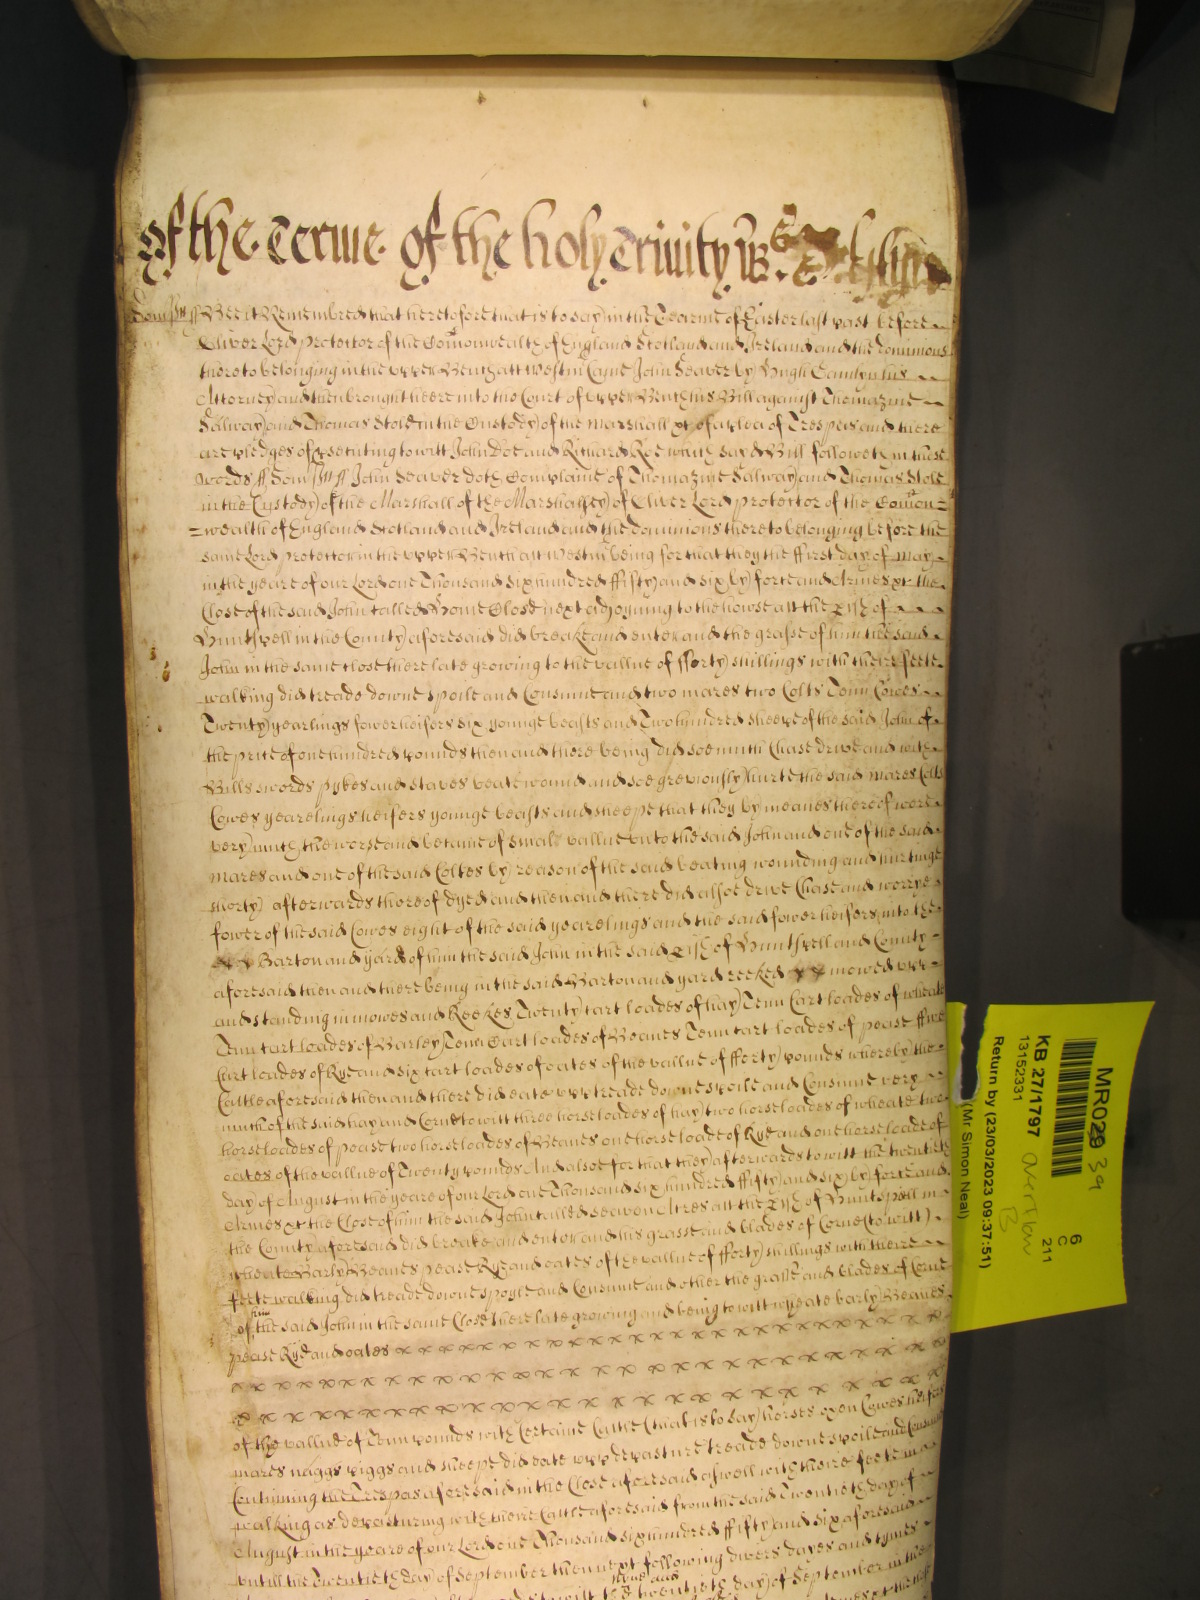 Of the Terme of the holy Trinity
Som̃ss ff Bee it Remembred that heretofore that is to say in the Tearme of Easter last past before
Oliver Lord protector of the Com̃onwealth of England Scotland and Ireland and the dominions
thereto belonging in the upper Bench att Westm̃ Came John Seaver by Hugh his
Attorney and then brought heere into the Court of upper Bench his Bill against Thomazine
Salway and Thomas Stole in the Custody of the Marshall &c of a plea of Trespas and there
are pledges of p̱secuting to witt John Doe and Richard Roe which said Bill followeth in these
words ff Som̃ss ff John Seaver doth Complaine of Thomazine Salway and Thomas Stole
in the Custody of the Marshall of the Marshalsey of Oliver Lord protector of the Com̃on=
=wealth of England Scotland and Ireland and the dominions thereto belonging before the
same Lord protector in the upper Bench att Westm̃ being for that they the ffirst day of May
in the yeare of our Lord one Thousand six hundred ffifty and six by force and Armes &c the
Close of the said John called Home Close next adjoyning to the howse att the p̱ish of
Huntspell in the County aforesaid did breake and enter and the grasse of him the said
John in the same close there late growing to the vallue of fforty shillings with theire feete
walking did treade downe spoile and Consume and two mares two Colts Tenn Cowes
Twenty yearlings fower heifers six younge beasts and Two hundred sheepe of the said John of
the price of one hundred pounds then and there being did soe much Chase drive and with
Bills swords pykes and staves beate wound and soe greviously hurte the said mares Colts
Cowes yearelings heifers younge beasts and sheepe that they by meanes thereof were
very much the worse and became of small vallue unto the said John and one of the said
mares and one of the said Coltes by reason of the said beating wounding and hurtinge
shorty afterwards thereof dyed and then and there did alsoe drive Chase and worrye
fower of the said Cowes eight of the said yearelings and the said fower heifers into the
Barton and yard of him the said John in the said p̱ish of Huntspell and County
aforesaid then and there being in the said Barton and yard reeked mowed upp
and standing in mowes and Reekes Twenty cart loades of hay Tenn Cart loades of wheate
Tenn cart loades of Barley Tenn Cart loades of Beanes Tenn cart loades of pease ffive
Cart loades of Rye and six cart loades of oates of the vallue of fforty pounds whereby the
Cattle aforesaid then and there did eate upp treade downe spoile and Consume very
much of the said hay and Corne to witt three horse loades of hay two horse loades of wheate two
horse loades of pease two horse loades of Beanes one horse loade of Rye and one horse loade of
oates of the vallue of Twenty pounds And alsoe for that they afterwards to witt the twentieth
day of August in the yeare of our Lord one Thousand six hundred ffifty and six by force and
Armes &c the Close of him the said John called Seaven Acres att the p̱ish of Huntspell in
the County aforesaid did breake and enter and his grasse and blades of Corne (to witt)
wheate Barly Beanes pease Rye and oates of the vallue of fforty shillings with theire
feete walking did treade downe spoyle and Consume and other the grasse and blades of Corne
of him the said John in the same Close there late growing and being to witt wheate barly Beanes
pease Rye and oates
of the vallue of Tenn pounds with Certaine Cattle (that is to say) horses oxen Cowes heifers
mares naggs piggs and sheepe did eate upp depasture treade downe spoile and Consume
Continuing the Trespas aforesaid in the Close aforesaid aswell with theire feete in
walking as depasturing with theire Cattle aforesaid from the said Twentieth day of
August in the yeare of our Lord one Thousand six hundred ffifty and six aforesaid
untill the Twentieth day of September then next following divers dayes and tymes
twentieth day of September in the
MR029 39
6
C
211
KB 27/1797
13152331
Return by (23/03/2023 09:37:51)
(Mr Simon Neal)